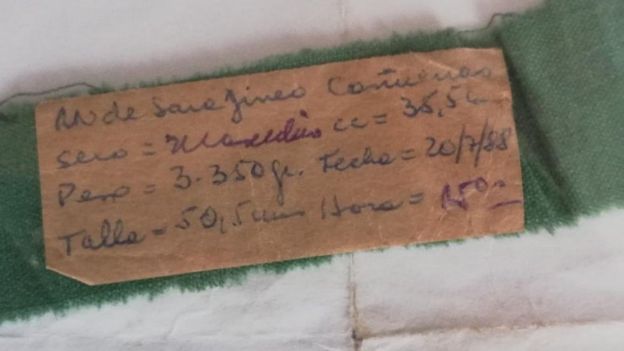 RN de Sara Jineo Cañueras
Sexo = Masculino CC = 35,5 cm
Peso = 3.350 gr. Fecha = 20/7/88
Talla = 50,5 cm Hora =